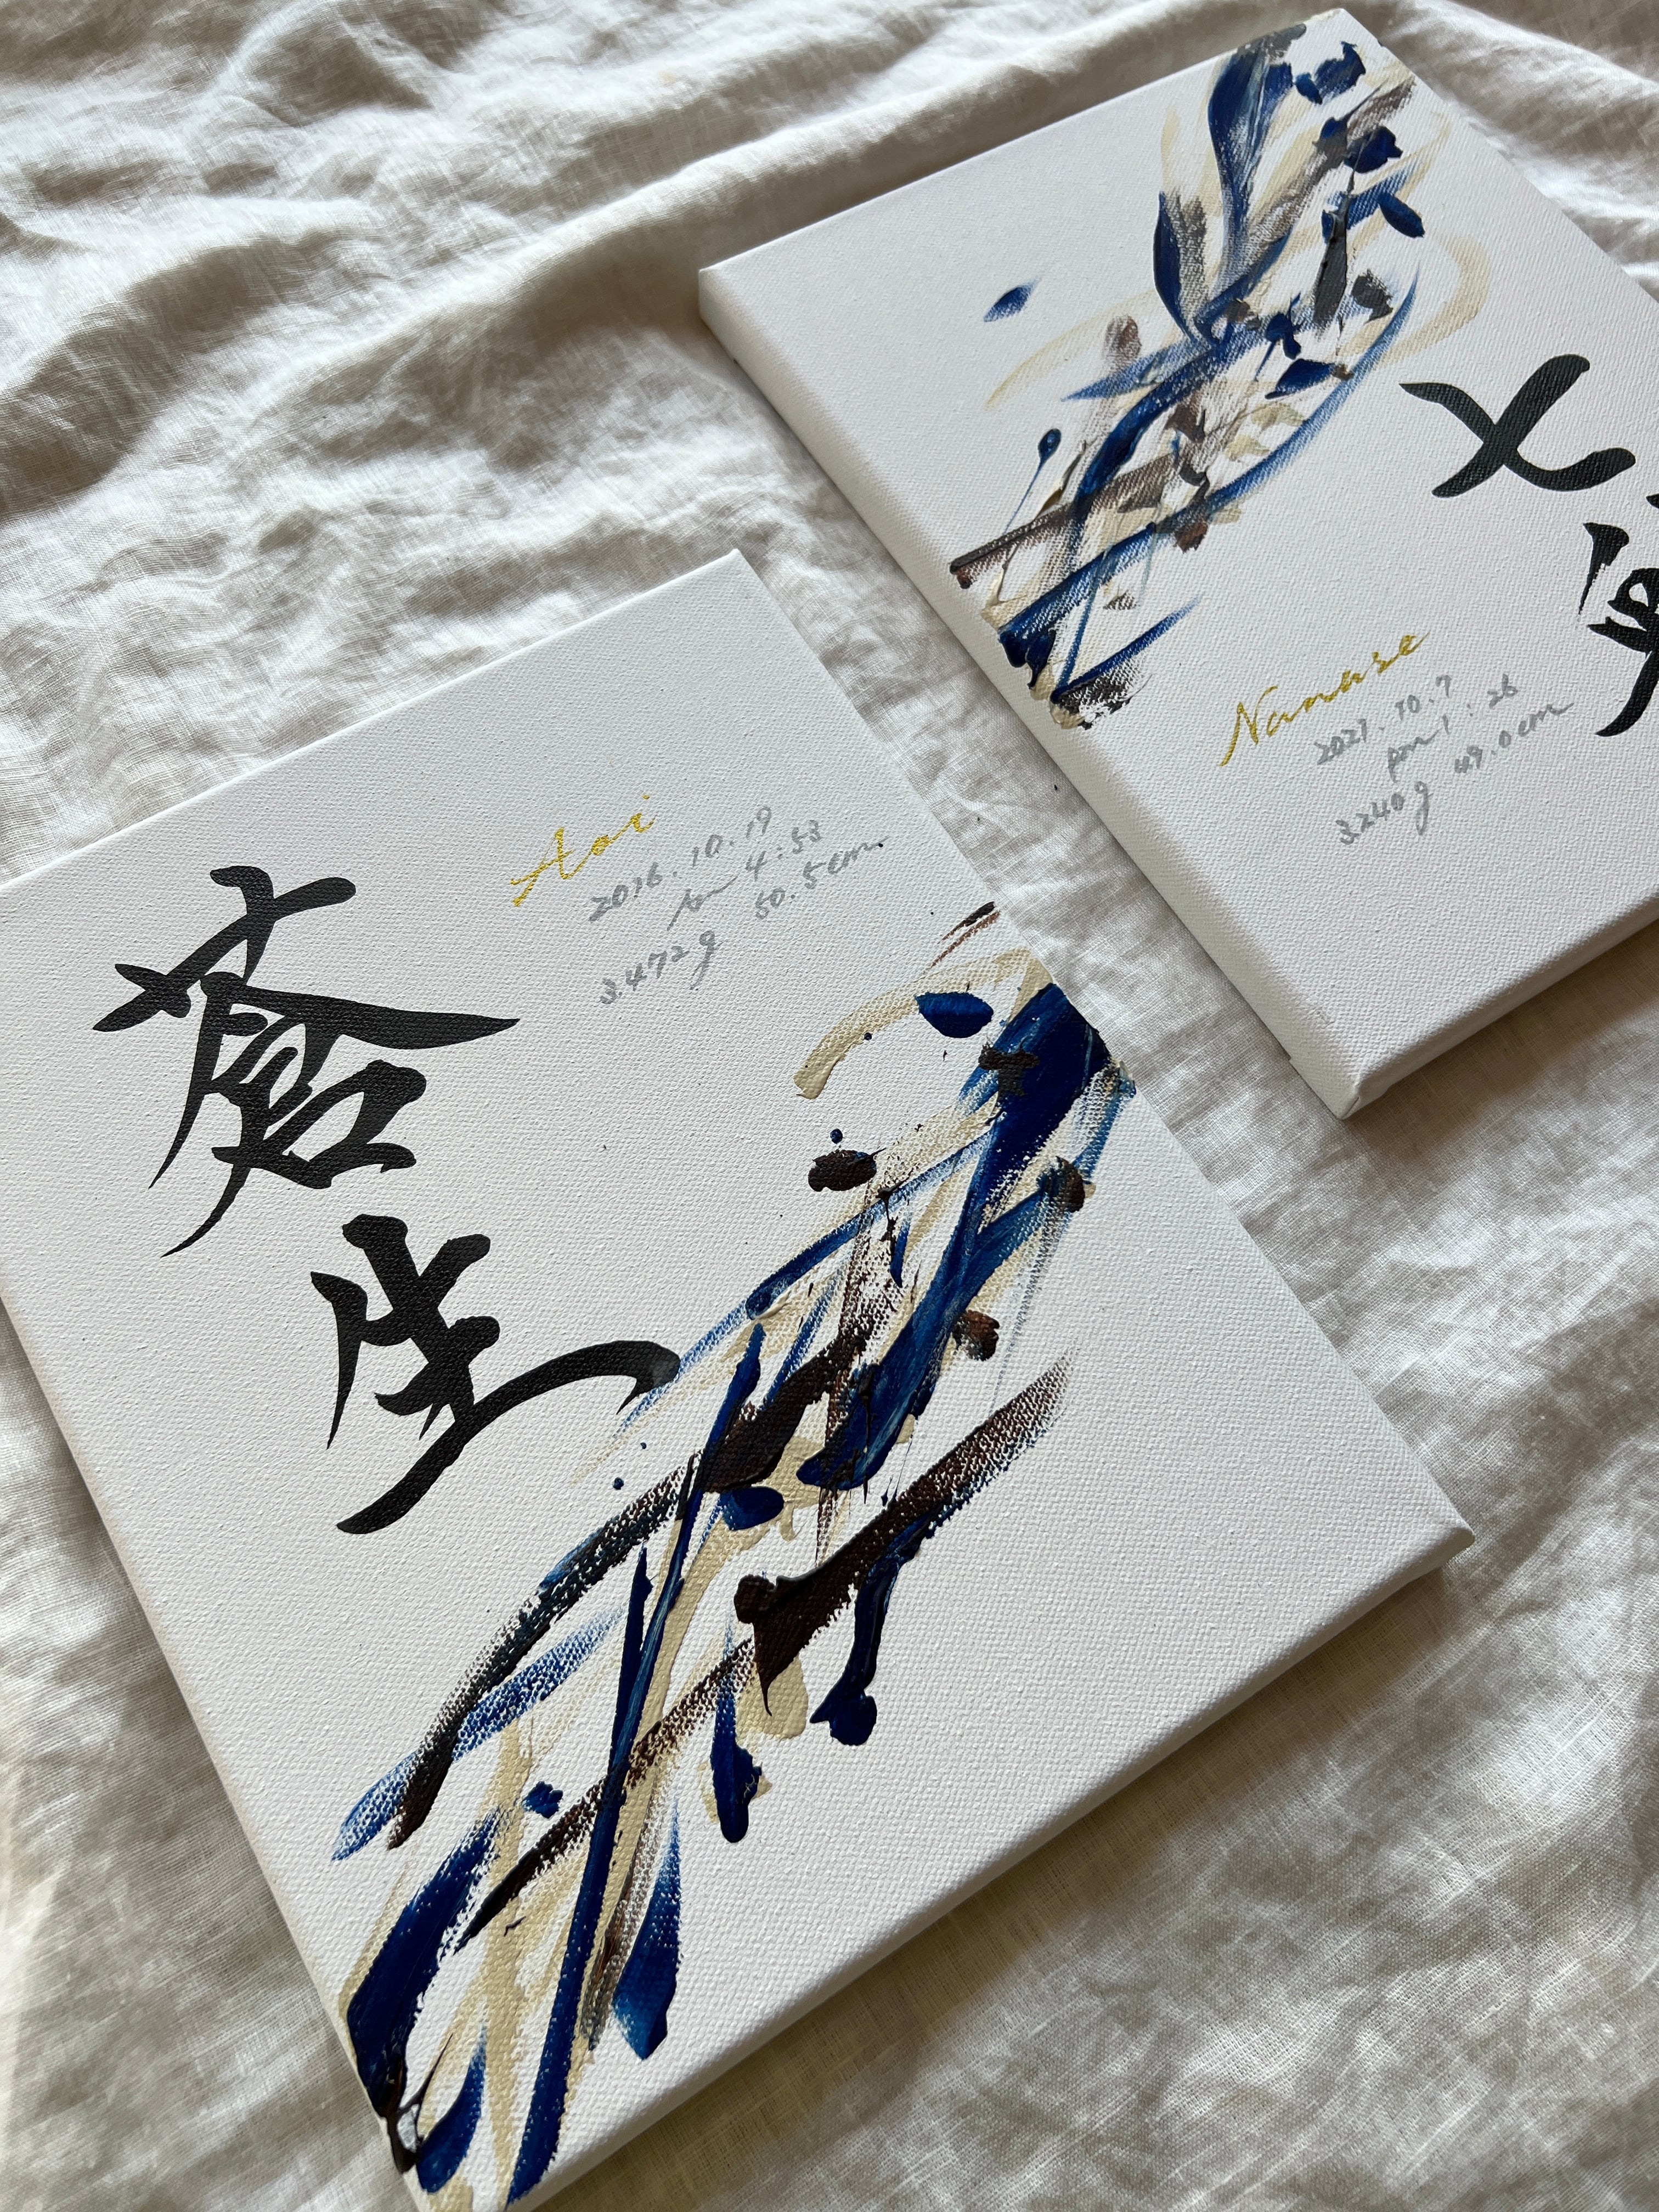 蒼生
Aoi
2016.10.19
am 4:53
3.472g 50.5cm
七
Nanase
2021.10.7
pm 1:26
3.240g 49.0cm